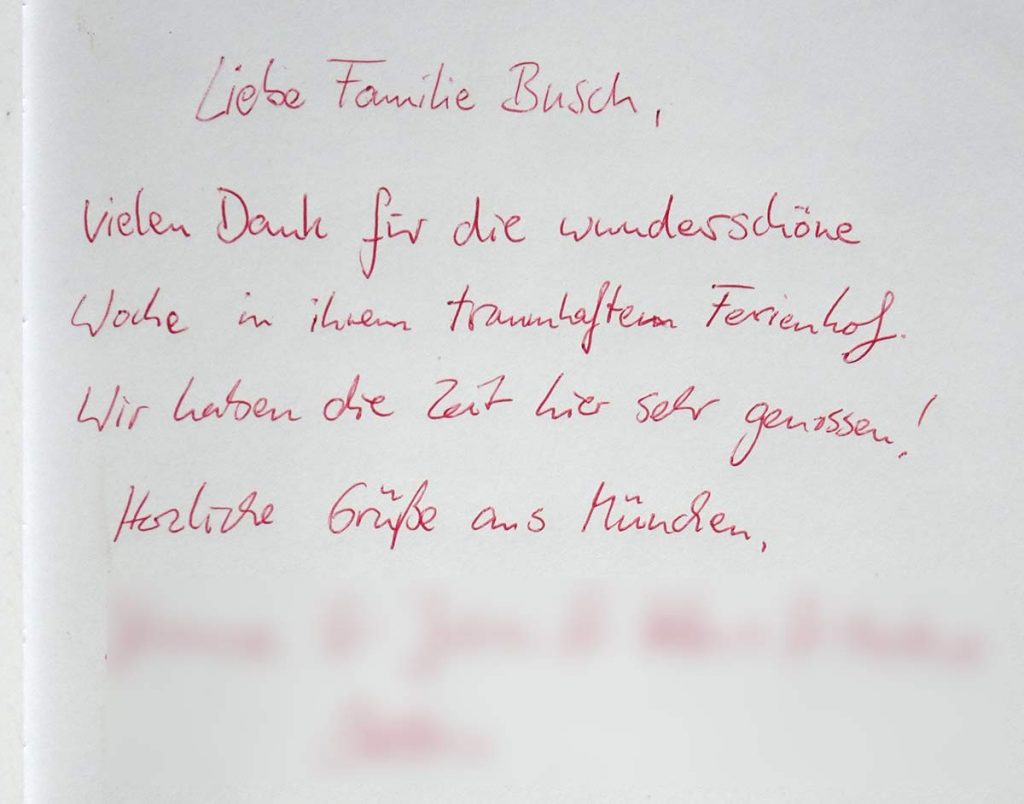 Liebe Familie Busch,
Vielen Dank für die wunderschöne
Woche in ihrem traumhaftem Ferienhof.
Wir haben die Zeit hier sehr genossen!
Herzliche Grüße aus München,